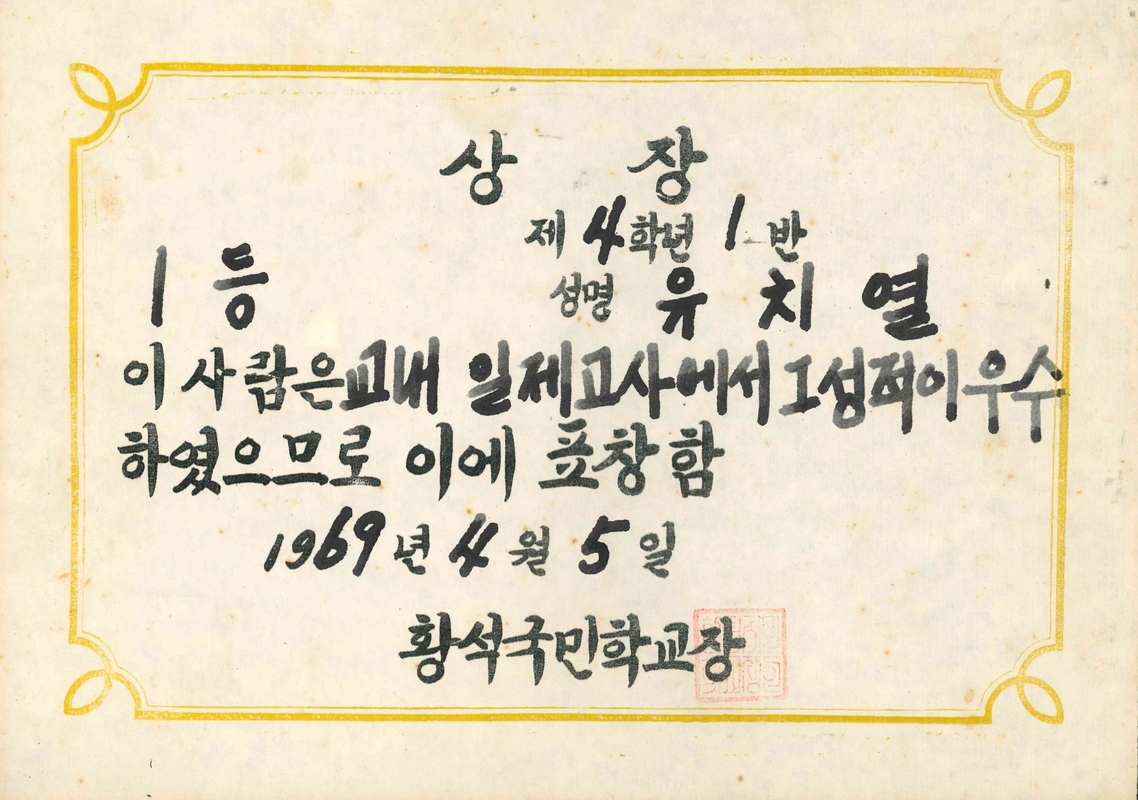 상 장
제 4 학년 1 반
1 등
성명 유 치 열
이 사람은 교내 일제고사에서 그 성적이 우수
하였으므로 이에 표창함
1969 년 4 월 5 일
황석국민학교장